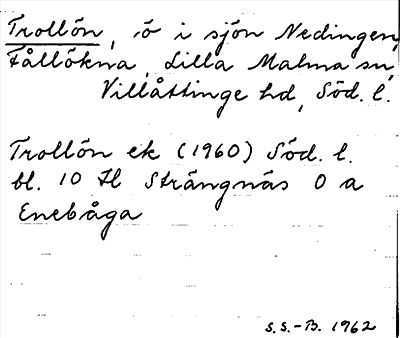 Trollön, ö i sjön Nedingen,
Fållökna, Lilla Malma sn,
Villåttinge hd, Söd. l.
Trollön ek (1960) Söd. l.
bl. 10 Il Strängnäs O a
Enebåga
S.S.-B. 1962